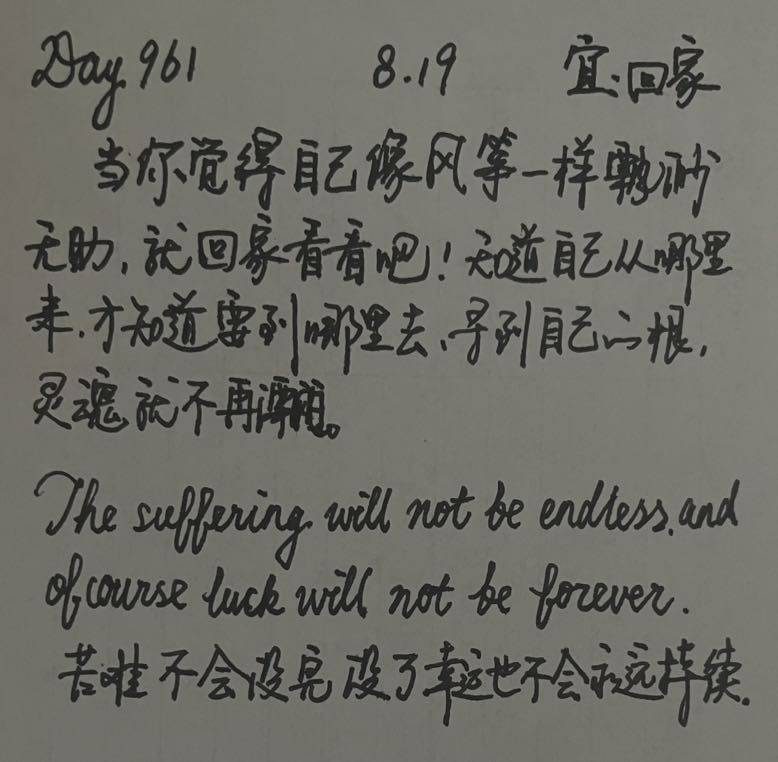 Day 961 8.19 宜:回家
当你觉得自己像风筝一样飘渺
无助,就回家看看吧!知道自己从哪里
来,才知道要到哪里去,寻到自己的根,
灵魂就不再漂泊。
The suffering will not be endless, and
of course luck will not be forever.
苦难不会没完没了幸运也不会永远持续.